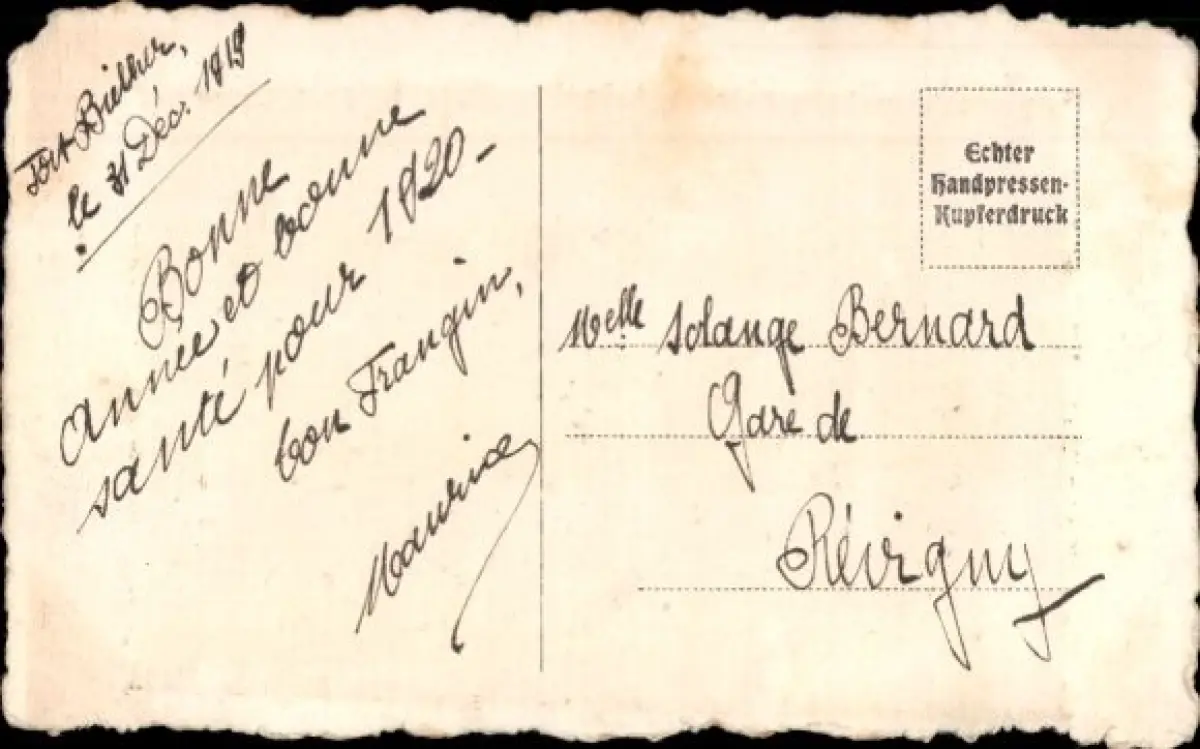 Fort Biehler,
le 31 Déc. 1919
Bonne
Année et bonne
santé pour 1920 -
ton Frangin,
Maurice
Echter
Handpressen-
Kupferdruck
Melle Solange Bernard
Gare de
Révigny